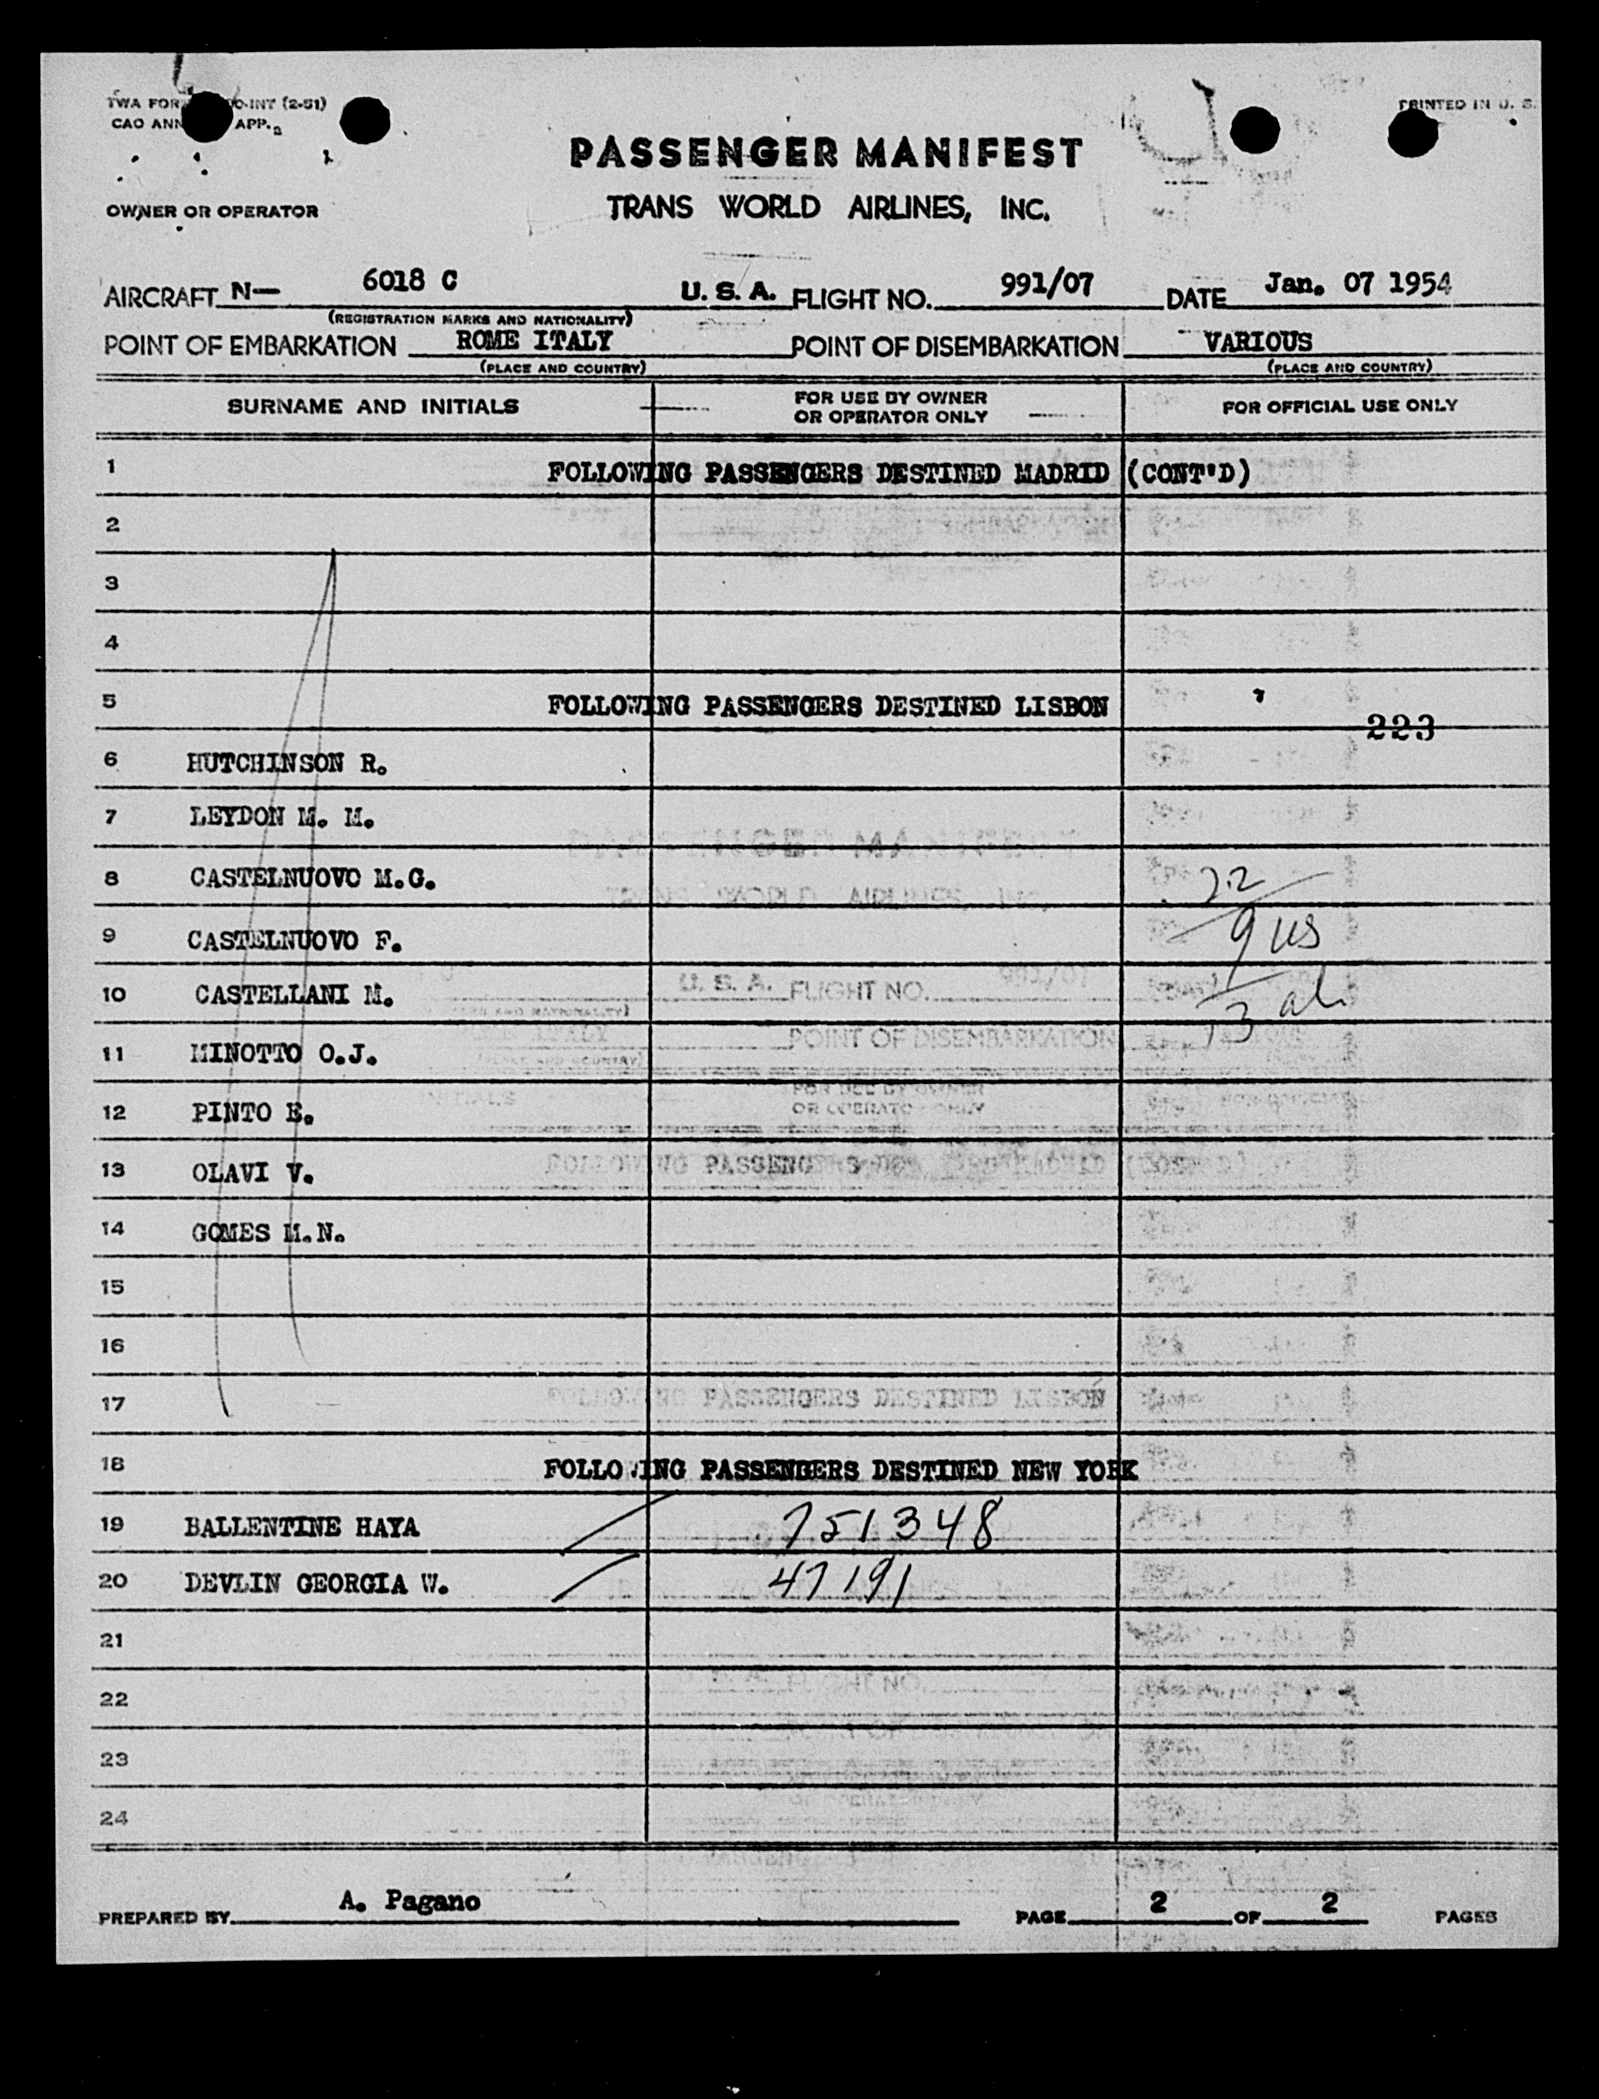 (2-51)
APP.
PRINTED IN U. S.
PASSENGER MANIFEST
TRANS WORLD AIRLINES, INC.
OWNER OR OPERATOR
AIRCRAFT N— 6018 C U. S. A. FLIGHT NO. 991/07 DATE Jan. 07 1954
(REGISTRATION MARKS AND NATIONALITY)
POINT OF EMBARKATION ROME ITALY POINT OF DISEMBARKATION VARIOUS
(PLACE AND COUNTRY) (PLACE AND COUNTRY)
SURNAME AND INITIALS FOR USE BY OWNER OR OPERATOR ONLY FOR OFFICIAL USE ONLY
1 FOLLOWING PASSENGERS DESTINED MADRID (CONT'D)
2
3
4
5 FOLLOWING PASSENGERS DESTINED LISBON
223
6 HUTCHINSON R.
7 LEYDON M. M.
8 CASTELNUOVO M.G. 22
9 CASTELNUOVO F. 9 us
10 CASTELLANI M.
13 al
11 MINOTTO O.J.
12 PINTO E.
13 OLAVI V.
14 GOMES M.N.
15
16
17
18 FOLLOWING PASSENGERS DESTINED NEW YORK
19 BALLENTINE HAYA 751348
20 DEVLIN GEORGIA W. 47191
21
22
23
24
PREPARED BY A. Pagano PAGE 2 OF 2 PAGES